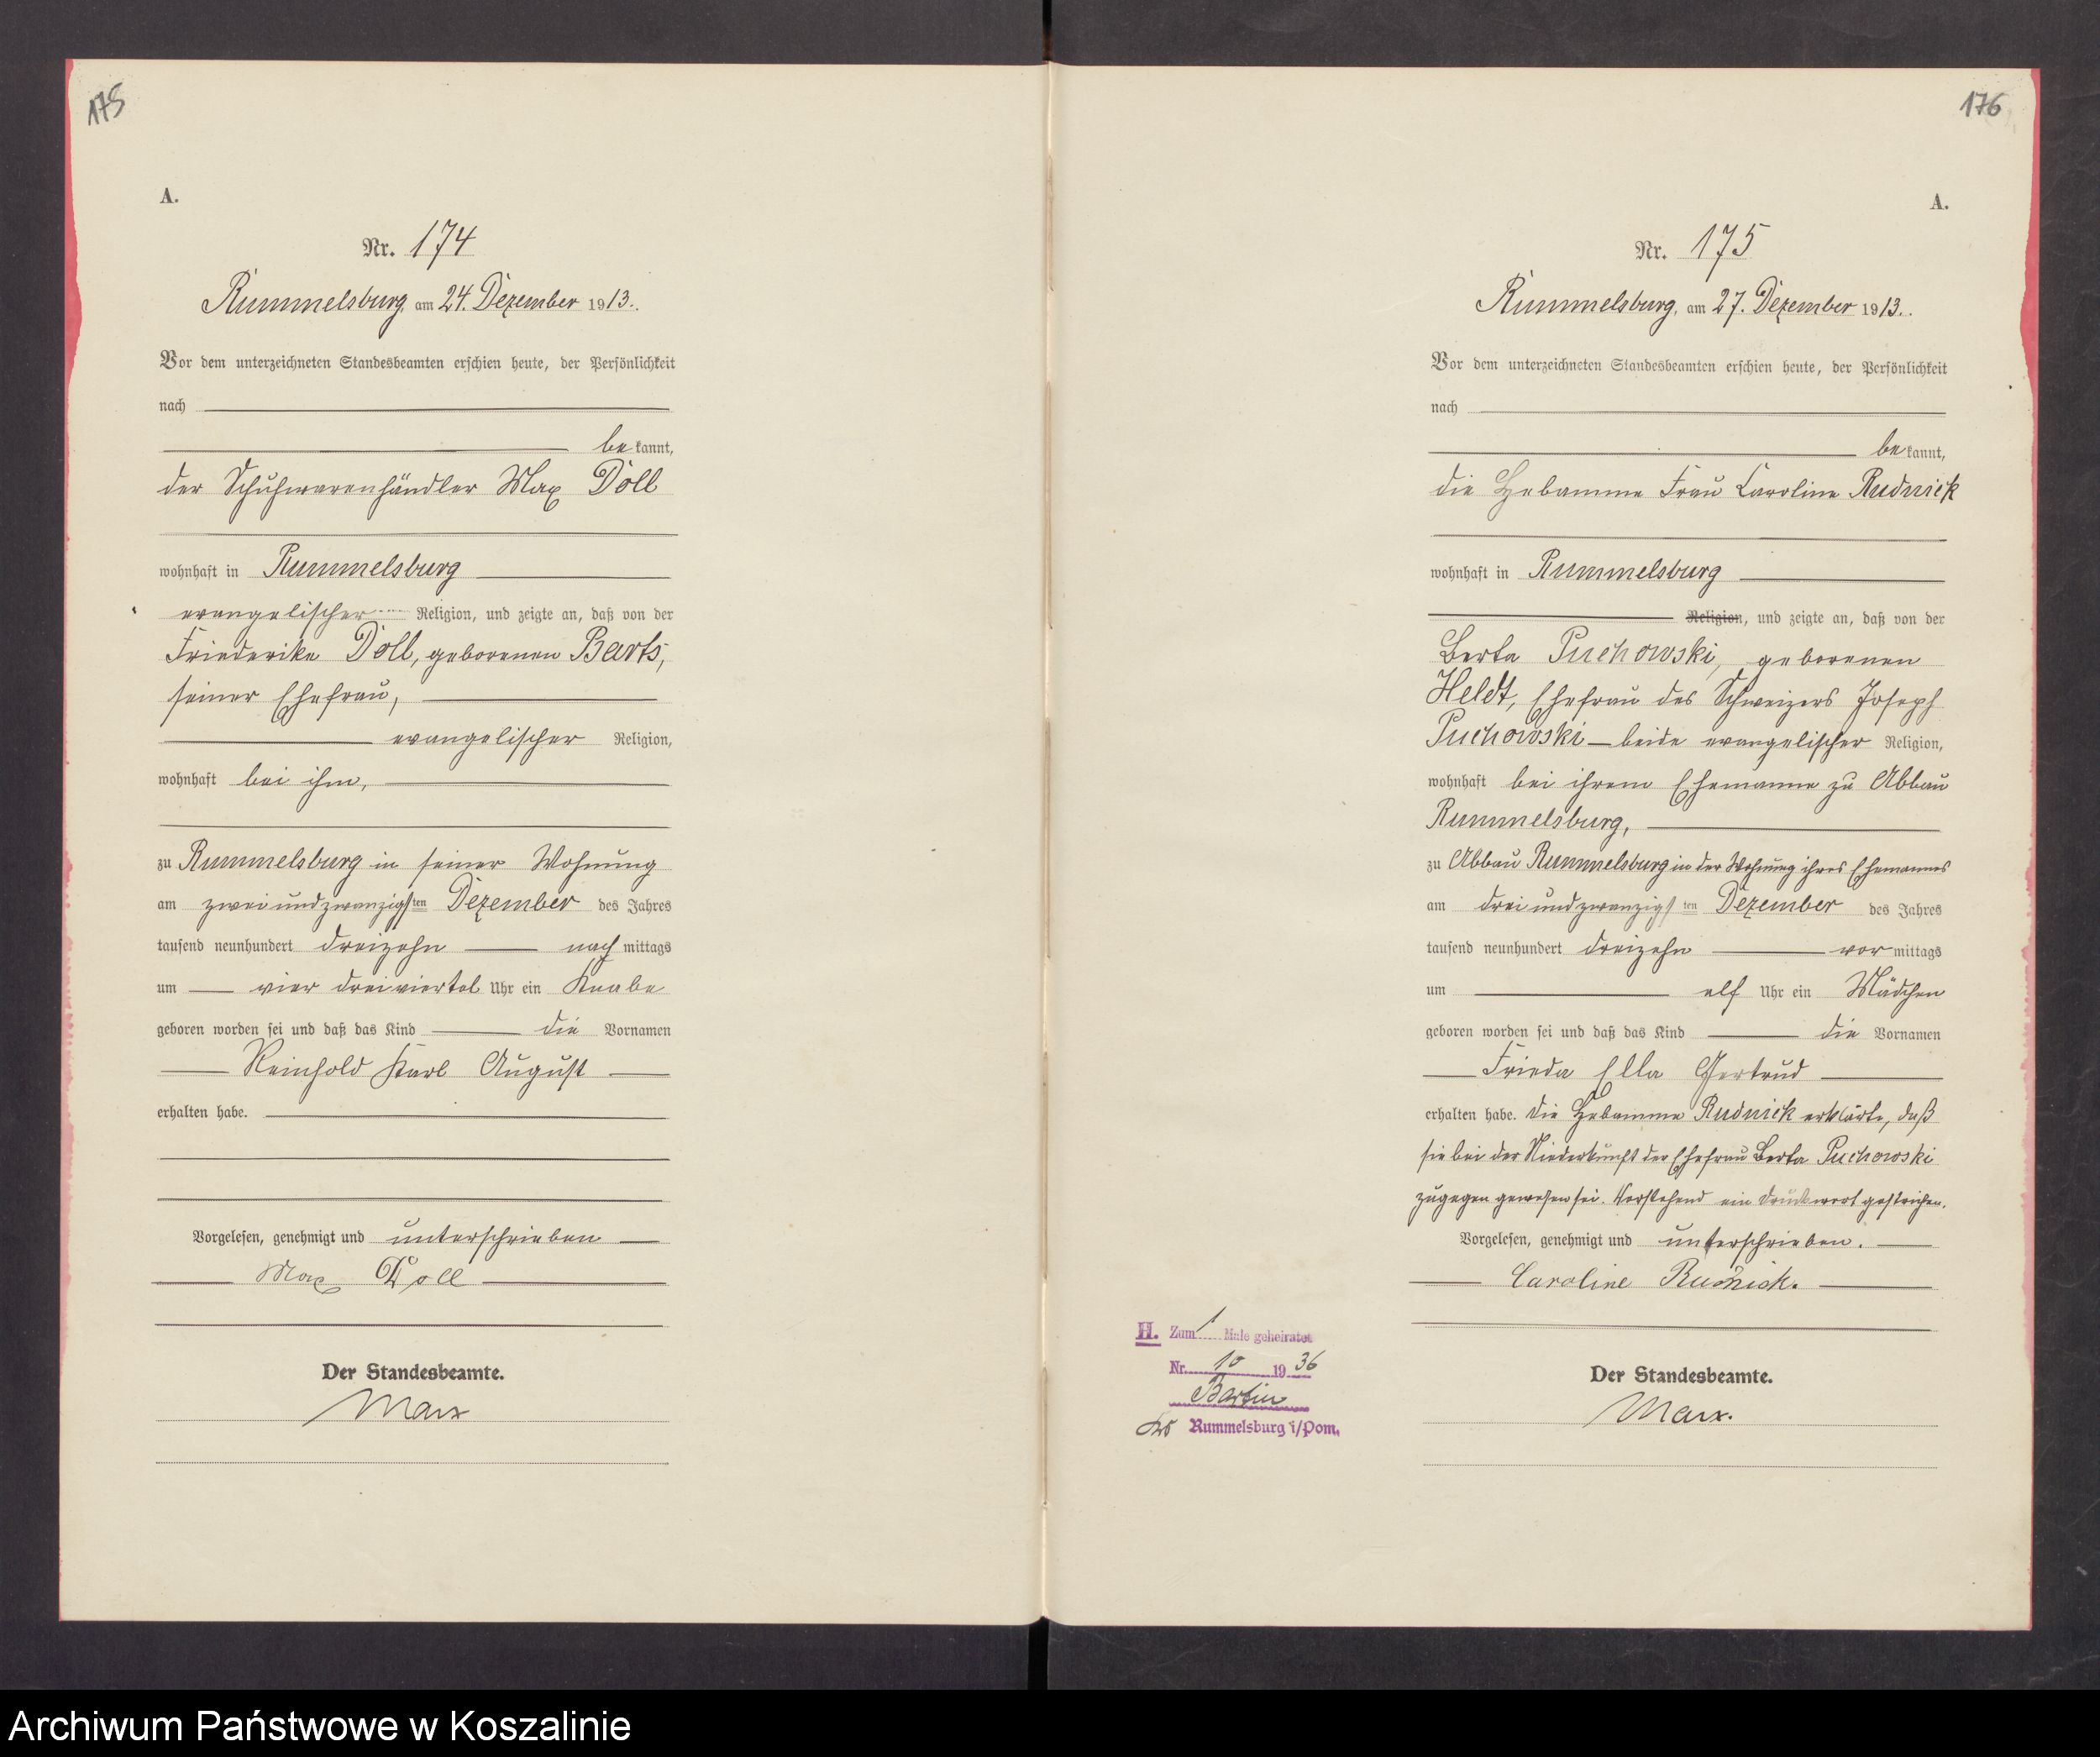 175
A.
Nr. 174
Rummelsburg, am 24. Dezember 1913.
Vor dem unterzeichneten Standesbeamten erschien heute, der Persönlichkeit
nach
bekannt,
der Schuhwarenhändler Max Doll
wohnhaft in Rummelsburg
evangelischer Religion, und zeigte an, daß von der
Friederike Doll, geborenen Barts,
seiner Ehefrau,
evangelischer Religion,
wohnhaft bei ihm,
zu Rummelsburg in seiner Wohnung
am zweiundzwanzigsten Dezember des Jahres
tausend neunhundert dreizehn nachmittags
um vier dreiviertel Uhr ein Knabe
geboren worden sei und daß das Kind die Vornamen
Reinhold Karl August
erhalten habe.
Vorgelesen, genehmigt und unterschrieben
Max Doll
Der Standesbeamte.
Marx
176
A.
Nr. 175
Rummelsburg, am 27. Dezember 1913.
Vor dem unterzeichneten Standesbeamten erschien heute, der Persönlichkeit
nach
bekannt,
die Hebamme Frau Caroline Rudnick
wohnhaft in Rummelsburg
Religion, und zeigte an, daß von der
Berta Puchowski, geborenen
Heldt, Ehefrau des Schweizers Joseph
Puchowski – beide evangelischer Religion,
wohnhaft bei ihrem Ehemanne zu Abbau
Rummelsburg,
zu Abbau Rummelsburg in der Wohnung ihres Ehemannes
am dreiundzwanzigsten Dezember des Jahres
tausend neunhundert dreizehn vormittags
um elf Uhr ein Mädchen
geboren worden sei und daß das Kind die Vornamen
Frieda Ella Gertrud
erhalten habe. Die Hebamme Rudnick erklärte, daß
sie bei der Niederkunft der Ehefrau Berta Puchowski
zugegen gewesen sei. Vorstehend ein Druckwort gestrichen.
Vorgelesen, genehmigt und unterschrieben.
Caroline Rudnick.
Der Standesbeamte.
Marx.
H. Zum 1 Male geheiratet
Nr. 10 1936
Bartin
Krs Rummelsburg i/Pom.
Archiwum Państwowe w Koszalinie